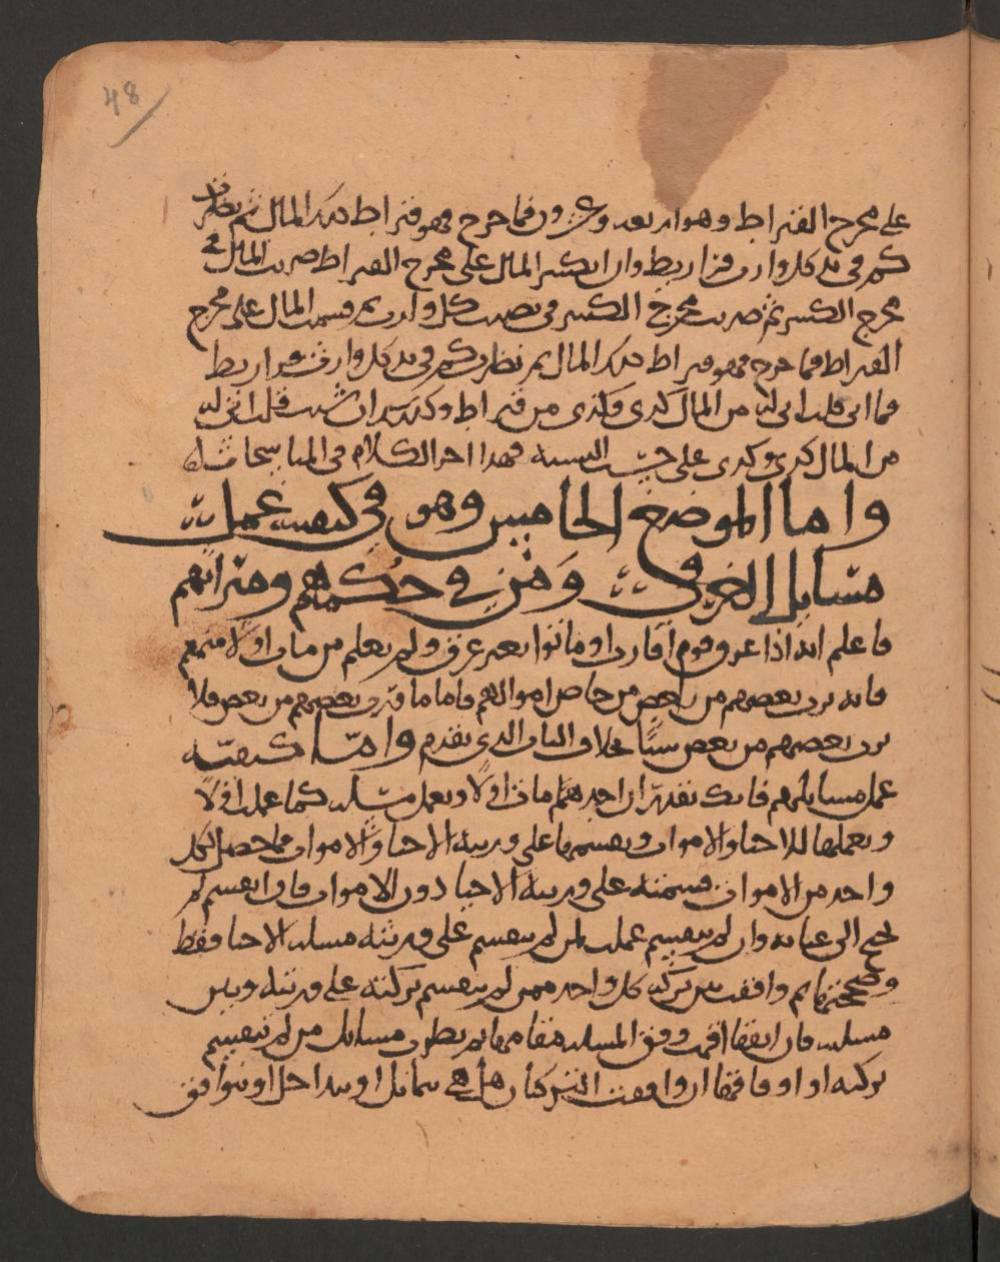 48
على مخرج القيراط وهو اربعه وعشرون فما خرج فهو قيراط ذلك المال ثم نظرت
كم في يد كل وارث قراريط وان انكسر المال على مخرج القيراط ضربت المال في
مخرج الكسر ثم ضربت مخرج الكسر في نصيب كل وارث ثم قسمت المال على مخرج
القيراط فما خرج فهو قيراط ذلك المال ثم نظرت كم في يد كل وارث قراريط
من المال كذى وكذى من قيراط وكذلك ان شئت قلت
من المال كذى وكذى على حسب النسبه فهذا اخر الكلام في المناسخات
واما الموضع الخامس وهو في كيفيه عمل
مسايل الغرقى ومن في حكمهم وميراثهم
فاعلم انه اذا غرق قوم اقارب او ماتوا بغير غرق ولم يعلم من مات اولا منهم
فانه يرث بعضهم من بعض من خاص اموالهم فاما ما ورث بعضهم من بعض فلا
يرث بعضهم من بعض شيئا بخلاف الباب الذي تقدم واما كيفيه
عمل مسايلهم فانك تقدر ان احدهم مات اولا وتعمل مسئلته كما عملت اولا
وتعملها للاحيا والاموات وتقسمها على ورثته الاحيا والاموات فما حصل لكل
واحد من الاموات قسمته على ورثته الاحيا دون الاموات فان انقسم لم
تحتج الى عنايه وان لم ينقسم عملت لمن لم ينقسم على ورثته مسئله الاحيا فقط
وصححتها ثم وافقت بين تركه كل واحد ممن لم ينقسم تركته على ورثته وبين
مسئلته فان اتفقا اقمت وفق المسئله مقامها ثم نظرت مسايل من لم ينقسم
تركته او اوفاقها ان وافقت التركات هل هي تماثل او تداخل او توافق